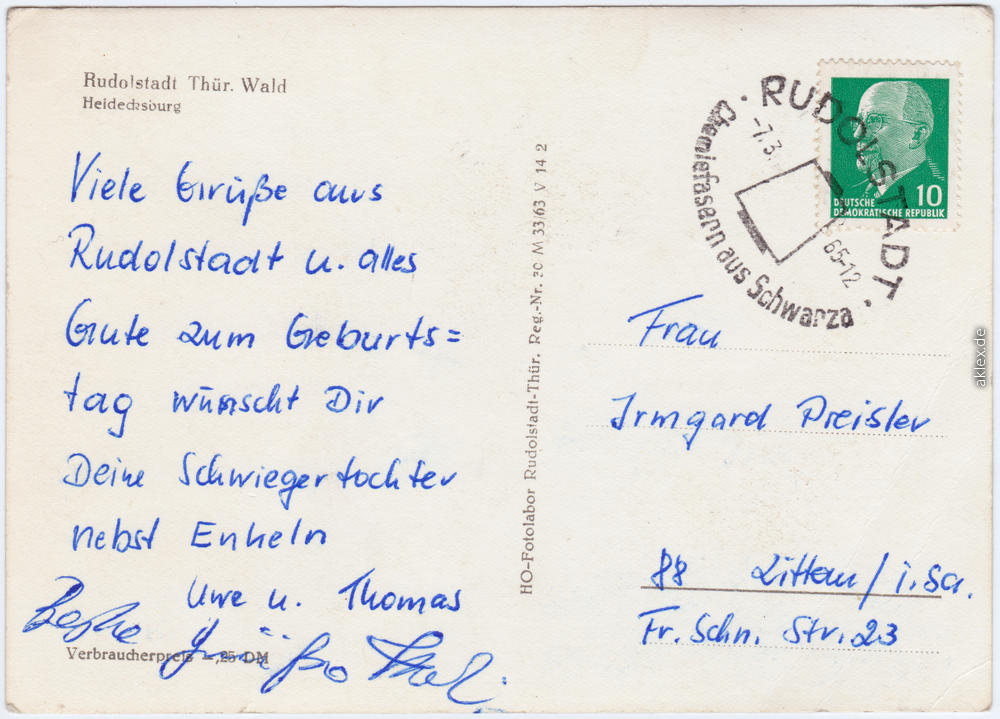 Rudolstadt Thür. Wald
Heidecksburg
Viele Grüße aus
Rudolstadt u. alles
Gute zum Geburts=
tag wünscht Dir
Deine Schwiegertochter
nebst Enkeln
Uwe u. Thomas
Beste Grüße
Verbraucherpreis -,25 DM
HO-Fotolabor Rudolstadt-Thür. Reg.-Nr. 20 M 33/63 V 14 2
RUDOLSTADT
-7.3.
65-12
Chemiefasern aus Schwarza
10
DEUTSCHE
DEMOKRATISCHE REPUBLIK
Frau
Irmgard Preisler
88 Zittau / i. Sa.
Fr. Schn. Str. 23
aklex.de